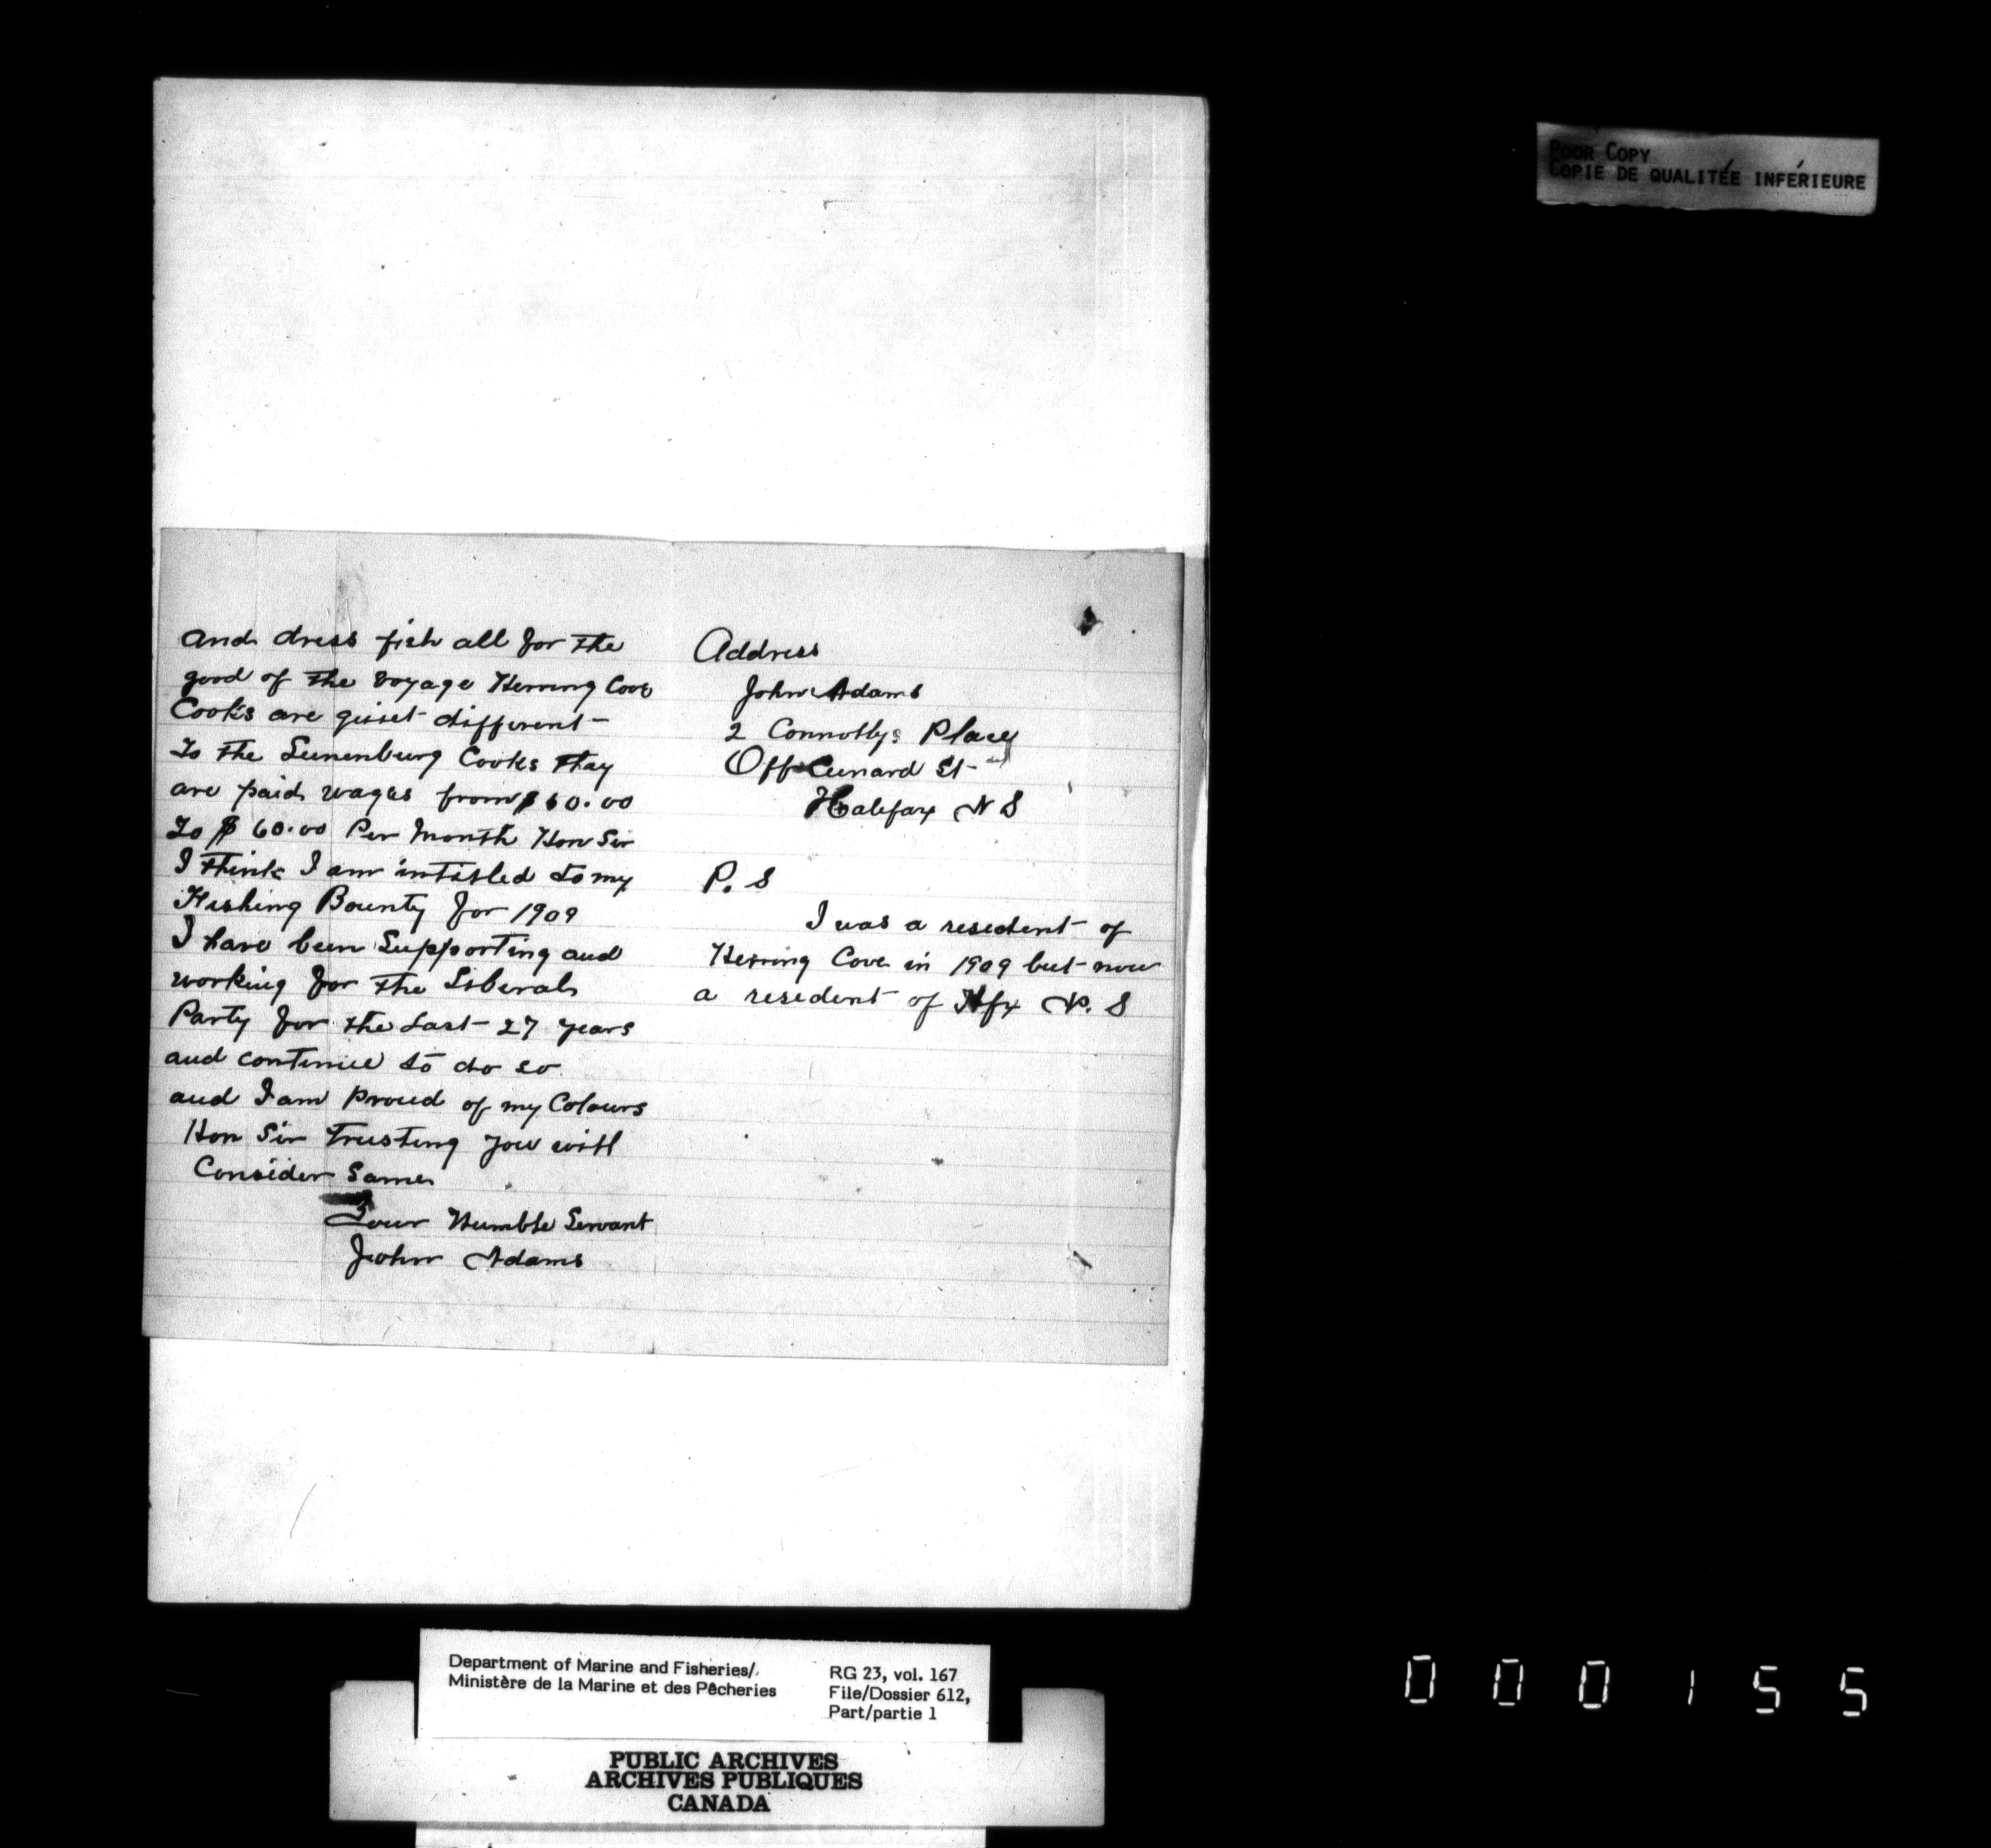 and dress fish all for the
good of the voyage Herring Cove
Cooks are quiet different
To the Lunenburg Cooks thay
are paid wages from $50.00
To $60.00 Per Month Hon Sir
I think I am intitled to my
Fishing Bounty for 1909
I have been Supporting and
working for the Liberal
Party for the Last 27 years
and continue to do so
and I am Proud of my Colours
Hon Sir Trusting you will
Consider Same
Your Humble Servant
John Adams
Address
John Adams
2 Connollys Place
Off Cunard St
Halifax N S
P. S
I was a resedent of
Herring Cove in 1909 but now
a resedent of Hfx N. S
POOR COPY
COPIE DE QUALITÉE INFÉRIEURE
Department of Marine and Fisheries/
Ministère de la Marine et des Pêcheries
RG 23, vol. 167
File/Dossier 612,
Part/partie 1
PUBLIC ARCHIVES
ARCHIVES PUBLIQUES
CANADA
000155